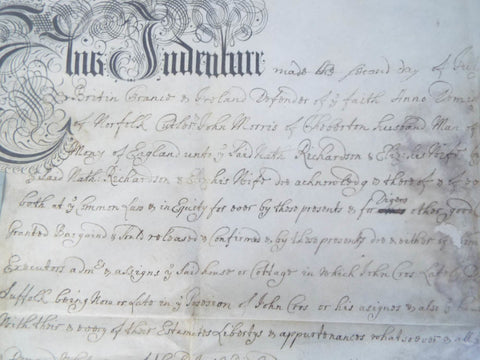 This Indenture made the second day of July
Britin France & Ireland Defender of ye faith Anno Domini
of Norfolk John Morris of Theberton husband Man of
Mony of England unto ye said Nath Richardson & Eliz: his Wife by
said Nath Richardson & Eliz his Wife doe acknowledg & thereof & of
both at ye Common Law & in Equity for ever by these presents & for Divers other good
Granted Bargaind & Sould released & confirmed & by these presents doe
Executors adm: & assigns ye said house or Cottage in which John Cros Late
Suffolk being Now or Late in ye of John Cros or his asignes & also
With their & every of their Libertys & appurtenances whatsoever & all